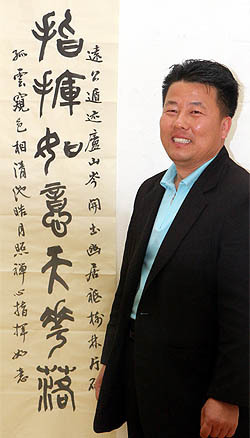 指揮如意天花落
遠公遁迹廬山岑開士幽居祇樹林片石
孤雲窺色相清池皓月照禪心指揮如意